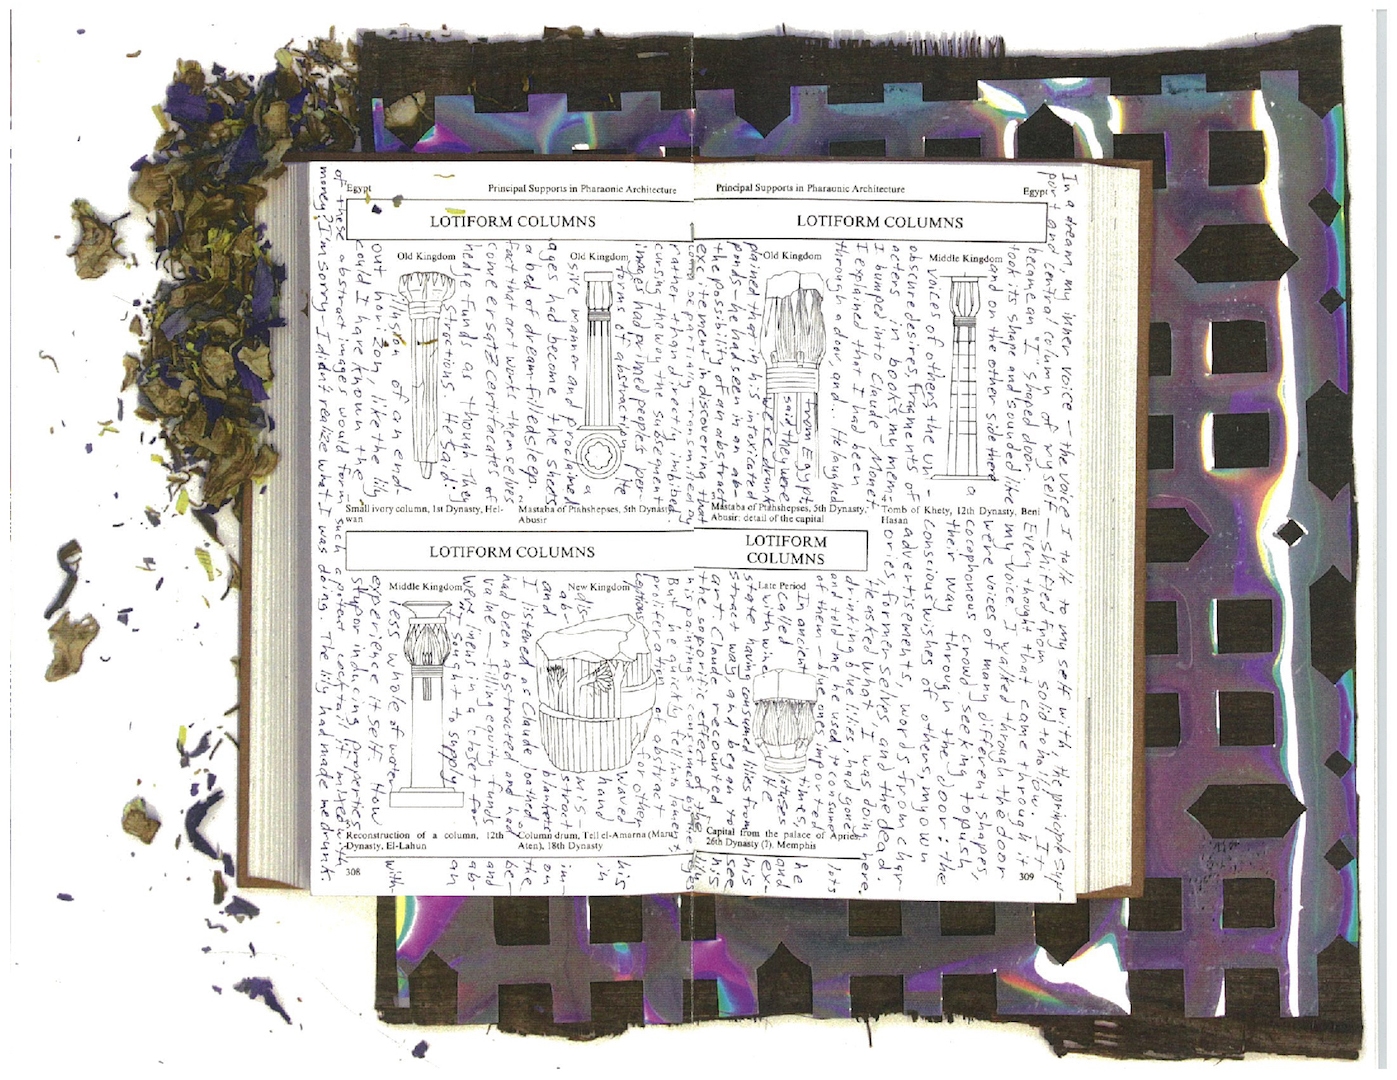 Egypt
Principal Supports in Pharaonic Architecture
LOTIFORM COLUMNS
Old Kingdom
Old Kingdom
Small ivory column, 1st Dynasty, Hel-
wan
Mastaba of Ptahshepses, 5th Dynasty,
Abusir
LOTIFORM COLUMNS
Middle Kingdom
New Kingdom
Reconstruction of a column, 12th
Dynasty, El-Lahun
Column drum, Tell el-Amarna (Maru
Aten), 18th Dynasty
308
Principal Supports in Pharaonic Architecture
Egypt
LOTIFORM COLUMNS
Old Kingdom
Middle Kingdom
Mastaba of Ptahshepses, 5th Dynasty,
Abusir: detail of the capital
Tomb of Khety, 12th Dynasty, Beni
Hasan
LOTIFORM
COLUMNS
Late Period
Capital from the palace of Apries,
26th Dynasty (?), Memphis
309
In a dream, my inner voice — the voice I talk to my self with, the principle sup-
port and central column of my self — shifted from solid to void. It
became an I shaped door. Every thought that came through it
took its shape and sounded like my voice. I walked through the door
and on the other side there were voices of many different shapes,
a cocophonous crowd seeking to push
their way through the door: the
voices of others, the un- conscious wishes of others, my own
obscure desires, fragments of advertisements, words from char-
acters in books, my mem- ories, former selves and the dead.
I bumped into Claude Monet. He asked what I was doing here.
I explained that I had been drinking blue lilies, had gone
through a door and.. He laughed and told me he used to consume lots
of them — blue ones imported
from Egypt. In ancient times, he
said they were called lotuses and
we're drunk with wine. He ex-
plained that in his intoxicated state having consumed lilies from his
ponds — he had seen in an ab- stract way and began to see
the possibility of an abstract art. Claude recounted his
excitement in discovering that the soporific effect of the lily
could be partially transmitted by his paintings - consumed by the eyes
rather than directly imbibed. But he quickly fell into lament,
cursing the way the subsequent proliferation of abstract
images had primed peoples per- ceptions for other
forms of abstraction. He waved his
hand in
a dis- mis-
sive manner and proclaimed ab- stract im-
ages had become the sheets and blankets on
a bed of dream-filled sleep. I listened as Claude loathed the
fact that art works themselves had been abstracted and had be-
come ersatz certificates of value — filling equity funds and
hedge funds as though they were linens in a closet for ab-
stractions. He said: I sought to supply an
illusion of an end- less whole of water with
out horizon, like the lily experience itself. How
could I have known the stupor inducing properties
of these abstract images would form such a potent cocktail if mixed with
money? I'm sorry — I didn't realize what I was doing. The lily had made me drunk.